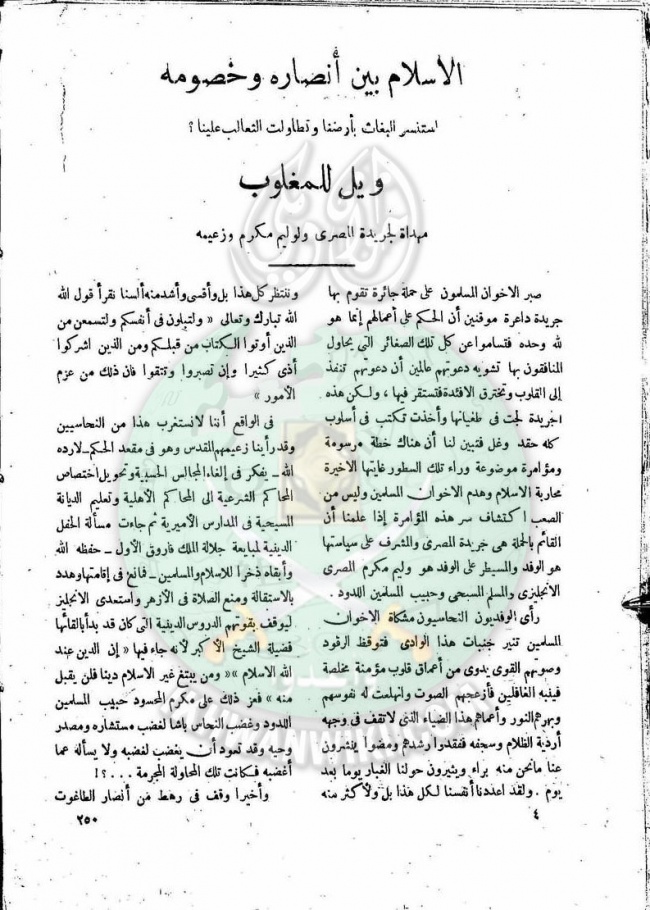 الاسلام بين أنصاره وخصومه
استنسر البغاث بأرضنا وتطاولت الثعالب علينا ؟
ويل للمغلوب
مهداة لجريدة المصرى ولوليم مكرم وزعيمه
صبر الاخوان المسلمون على حملة جائرة تقوم بها
جريدة داعرة موقنين أن الحكم على أعمالهم إنما هو
لله وحده فتساموا عن كل تلك الصغائر التى يحاول
المنافقون بها تشويه دعوتهم عالمين أن دعوتهم تنفذ
إلى القلوب وتخترق الافئدة فتستقر فيها ، ولكن هذه
الجريدة لجت فى طغيانها وأخذت تكتب فى أسلوب
كله حقد وغل فتبين لنا أن هناك خطة مرسومة
ومؤامرة موضوعة وراء تلك السطور غايتها الاخيرة
محاربة الاسلام وهدم الاخوان المسلمين وليس من
الصعب اكتشاف سر هذه المؤامرة إذا علمنا أن
القائم بالحملة هى جريدة المصرى والمشرف على سياستها
هو الوفد والمسيطر على الوفد هو وليم مكرم المصرى
الانجليزى والمسلم المسيحى وحبيب المسلمين اللدود .
رأى الوفديون النحاسيون مشكاة الاخوان
المسلمين تنير جنبات هذا الوادى فتوقظ الرقود
وصوتهم القوى يدوى من أعماق قلوب مؤمنة مخلصة
فينبه الغافلين فأزعجهم الصوت وانهلعت له نفوسهم
وبهرهم النور وأعماهم هذا الضياء الذى لاتقف فى وجهه
أردية الظلام وسجفه ففقدوا رشدهم ومضوا ينشرون
عنا مانحن منه براء ويثيرون حولنا الغبار يوما بعد
يوم . ولقد اعددنا أنفسنا لكل هذا بل ولأكثر منه
٤
وننتظر كل هذا بل وأقسى وأشد منه ألسنا نقرأ قول الله
الله تبارك وتعالى « ولتبلون فى أنفسكم ولتسمعن من
الذين أوتوا الكتاب من قبلكم ومن الذين اشركوا
أذى كثيرا وإن تصبروا وتتقوا فان ذلك من عزم
الأمور »
فى الواقع أننا لانستغرب هذا من النحاسيين
وقد رأينا زعيمهم المقدس وهو فى مقعد الحكم ـ لارده
الله ـ يفكر فى إلغاء المجالس الحسبية وتحويل اختصاص
المحاكم الشرعية الى المحاكم الأهلية وتعليم الديانة
المسيحية فى المدارس الأميرية ثم جاءت مسألة الحفل
الدينية لمبايعة جلالة الملك فاروق الأول ـ حفظه الله
وأبقاه ذخرا للاسلام والمسلمين ـ فمانع فى إقامتها وهدد
بالاستقالة ومنع الصلاة فى الأزهر واستعدى الانجليز
ليوقف بقوتهم الدروس الدينية التى كان قد بدأ بالقائها
فضيلة الشيخ الأكبر لأنه جاء فيها « إن الدين عند
الله الاسلام » « ومن يبتغ غير الاسلام دينا فلن يقبل
منه » فعز ذلك على مكرم المحسود حبيب المسلمين
اللدود وغضب النحاس باشا لغضب مستشاره ومصدر
وحيه وقد تعود أن يغضب لغضبه ولا يسأله عما
أغضبه فكانت تلك المحاولة المجرمة . . . ؟ !
وأخيرا وقف فى رهط من أنصار الطاغوت
٢٥٠